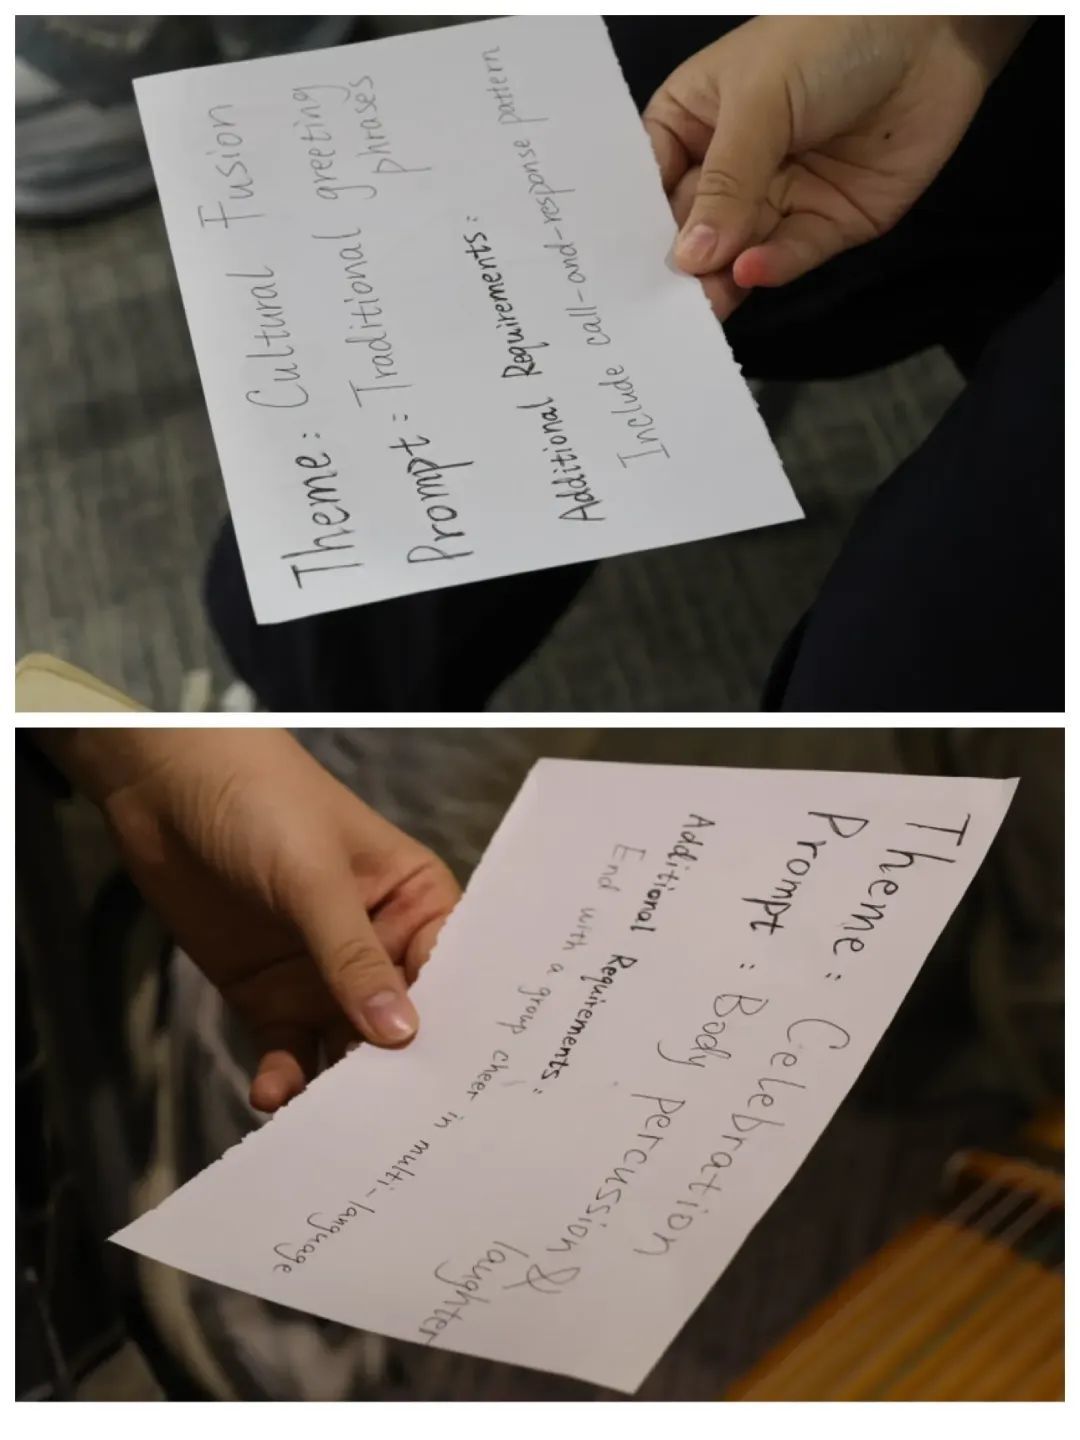 Theme: Cultural Fusion
Prompt: Traditional greeting
phrases
Additional Requirements:
Include call-and-response pattern
Theme: Celebration
Prompt: Body percussion &
laughter
Additional Requirements:
End with a group cheer in multi-language